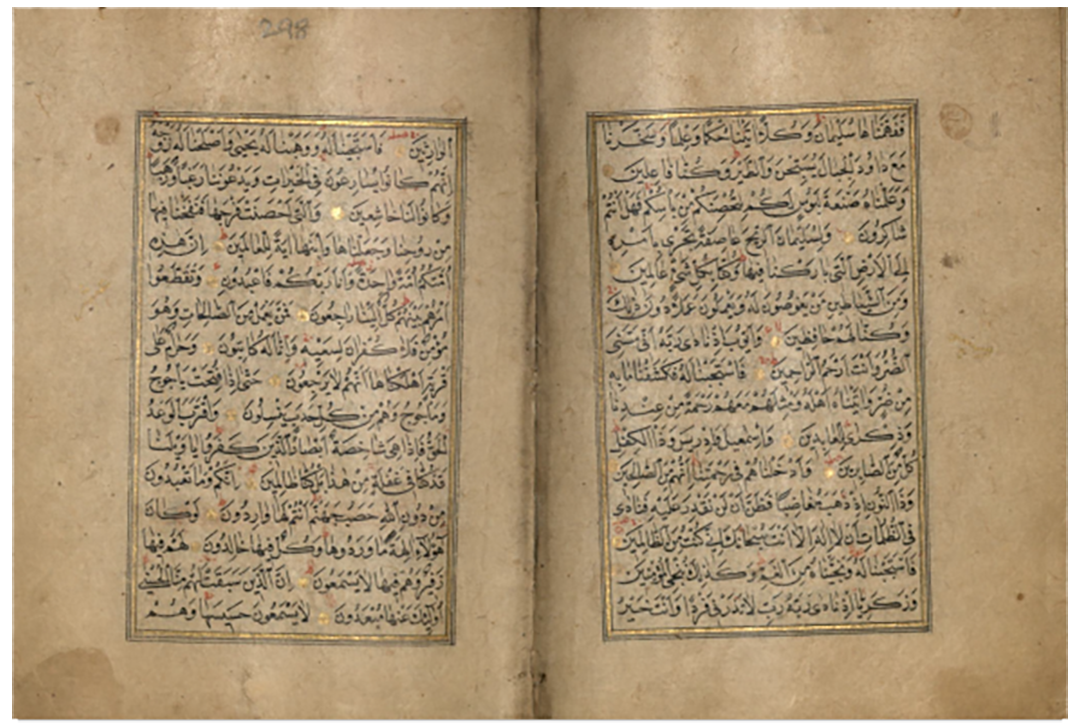 ففهمناها سليمان وكلا اتينا حكما وعلما وسخرنا
مع داود الجبال يسبحن والطير وكنا فاعلين
وعلمناه صنعة لبوس لكم لتحصنكم من باسكم فهل انتم
شاكرون ولسليمان الريح عاصفة تجري بامره
الى الارض التي باركنا فيها وكنا بكل شيء عالمين
ومن الشياطين من يغوصون له ويعملون عملا دون ذلك
وكنا لهم حافظين وايوب اذ نادى ربه اني مسني
الضر وانت ارحم الراحمين فاستجبنا له فكشفنا ما به
من ضر واتيناه اهله ومثلهم معهم رحمة من عندنا
وذكرى للعابدين واسمعيل وادريس وذا الكفل
كل من الصابرين وادخلناهم في رحمتنا انهم من الصالحين
وذا النون اذ ذهب مغاضبا فظن ان لن نقدر عليه فنادى
في الظلمات ان لا اله الا انت سبحانك اني كنت من الظالمين
فاستجبنا له ونجيناه من الغم وكذلك ننجي المؤمنين
وزكريا اذ نادى ربه رب لا تذرني فردا وانت خير
298
الوارثين فاستجبنا له ووهبنا له يحيى واصلحنا له زوجه
انهم كانوا يسارعون في الخيرات ويدعوننا رغبا ورهبا
وكانوا لنا خاشعين والتي احصنت فرجها فنفخنا فيها
من روحنا وجعلناها وابنها اية للعالمين ان هذه
امتكم امة واحدة وانا ربكم فاعبدون وتقطعوا
امرهم بينهم كل الينا راجعون فمن يعمل من الصالحات وهو
مؤمن فلا كفران لسعيه وانا له كاتبون وحرام على
قرية اهلكناها انهم لا يرجعون حتى اذا فتحت ياجوج
وماجوج وهم من كل حدب ينسلون واقترب الوعد
الحق فاذا هي شاخصة ابصار الذين كفروا يا ويلنا
قد كنا في غفلة من هذا بل كنا ظالمين انكم وما تعبدون
من دون الله حصب جهنم انتم لها واردون لو كان
هؤلاء الهة ما وردوها وكل فيها خالدون لهم فيها
زفير وهم فيها لا يسمعون ان الذين سبقت لهم منا الحسنى
اولئك عنها مبعدون لا يسمعون حسيسها وهم